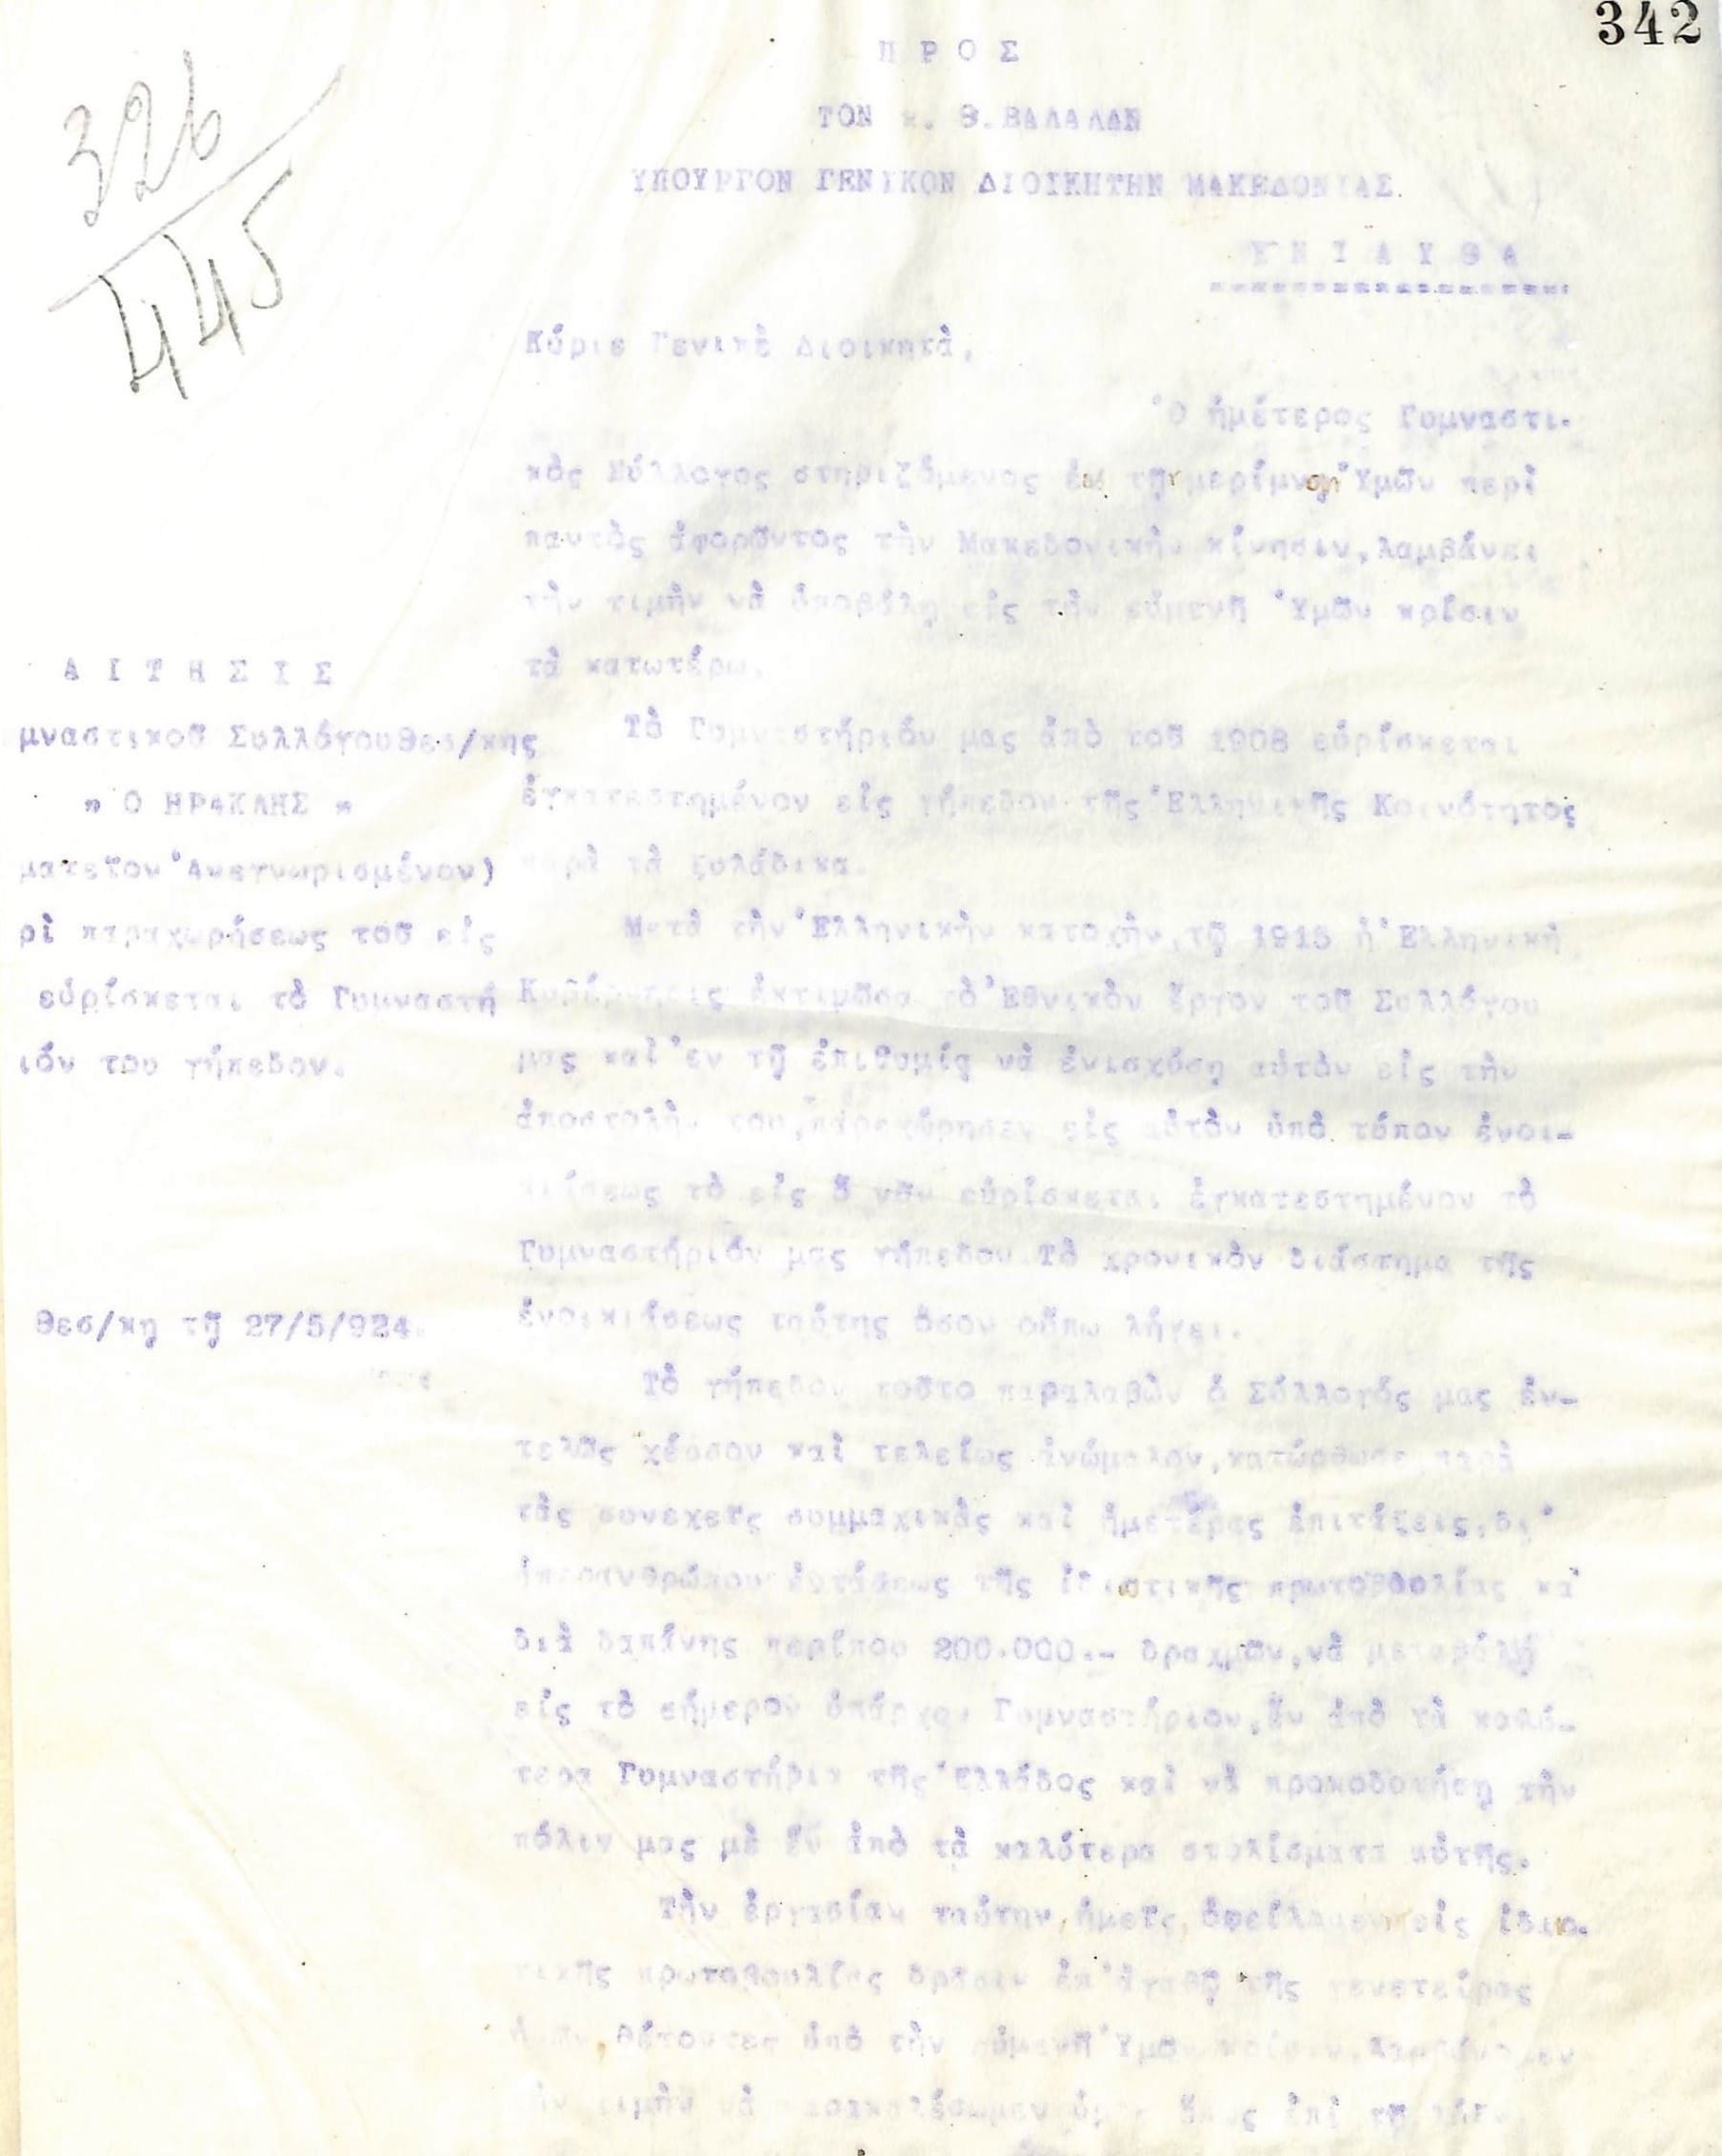 342
326
445
Π Ρ Ο Σ
ΤΟΝ κ. Θ. ΒΑΛΑΛΑΝ
ΥΠΟΥΡΓΟΝ ΓΕΝΙΚΟΝ ΔΙΟΙΚΗΤΗΝ ΜΑΚΕΔΟΝΙΑΣ.
Ε Ν Τ Α Υ Θ Α
Κύριε Γενικὲ Διοικητὰ,
Ὁ ἡμέτερος Γυμναστι-
κὸς Σύλλογος στηριζόμενος τῇ μερίμνῃ Ὑμῶν περὶ
παντὸς ἀφορῶντος τὴν Μακεδονικὴν κίνησιν, λαμβάνει
τὴν τιμὴν νὰ ὑποβάλῃ εἰς τὴν εὐμενῆ Ὑμῶν κρίσιν
τὰ κατωτέρω.
Τὸ Γυμναστήριόν μας ἀπὸ τοῦ 1908 εὑρίσκεται
ἐγκατεστημένον εἰς γήπεδον τῆς Ἑλληνικῆς Κοινότητος
παρὰ τὰ ξυλάδικα.
Μετὰ τὴν Ἑλληνικὴν κατοχὴν, τῷ 1915 ἡ Ἑλληνικὴ
Κυβέρνησις ἐκτιμῶσα τὸ Ἐθνικὸν ἔργον τοῦ Συλλόγου
μας καὶ ἐν τῇ ἐπιθυμίᾳ νὰ ἐνισχύσῃ αὐτὸν εἰς τὴν
ἀποστολὴν του, παρεχώρησεν εἰς αὐτὸν ὑπὸ τύπον ἐνοι-
κιάσεως τὸ εἰς ὅ νῦν εὑρίσκεται ἐγκατεστημένον τὸ
Γυμναστήριόν μας γήπεδον. Τὸ χρονικὸν διάστημα τῆς
ἐνοικιάσεως ταύτης ὅσον οὔπω λήγει.
Τὸ γήπεδον τοῦτο παραλαβὼν ὁ Σύλλογός μας ἐν-
τελῶς χέρσον καὶ τελείως ἀνώμαλον, κατώρθωσε, παρὰ
τὰς συνεχεῖς συμμαχικὰς καὶ ἡμετέρας ἐπιτάξεις, δι'
ὑπερανθρώπου ἐντάσεως τῆς ἰδιωτικῆς πρωτοβουλίας κα
διὰ δαπάνης περίπου 200.000.- δραχμῶν, νὰ μεταβάλῃ
εἰς τὸ σήμερον ὑπάρχον Γυμναστήριον, ἕν ἀπὸ τὰ καλύ-
τερα Γυμναστήρια τῆς Ἑλλάδος καὶ νὰ προικοδοτήσῃ τὴν
πόλιν μας μὲ ἕν ἀπὸ τὰ καλύτερα στολίσματα αὐτῆς.
Τὴν ἐργασίαν ταύτην ἡμεῖς ὀφείλομεν εἰς ἰδιω-
τικῆς πρωτοβουλίας δρᾶσιν ἐπ' ἀγαθῷ τῆς γενετείρας
θέτοντες ὑπὸ τὴν εὐμενῆ Ὑμῶν κρίσιν, λαμβάνομεν
τὴν τιμὴν νὰ παρακαλέσωμεν ὑμᾶς ὅπως ἐπὶ τῇ
Α Ι Τ Η Σ Ι Σ
μναστικοῦ Συλλόγου Θεσ/κης
" Ο ΗΡΑΚΛΗΣ "
ματεῖον Ἀνεγνωρισμένον)
ρὶ παραχωρήσεως τοῦ εἰς
εὑρίσκεται τὸ Γυμναστή
ιόν του γήπεδον.
Θεσ/κη τῇ 27/5/924.